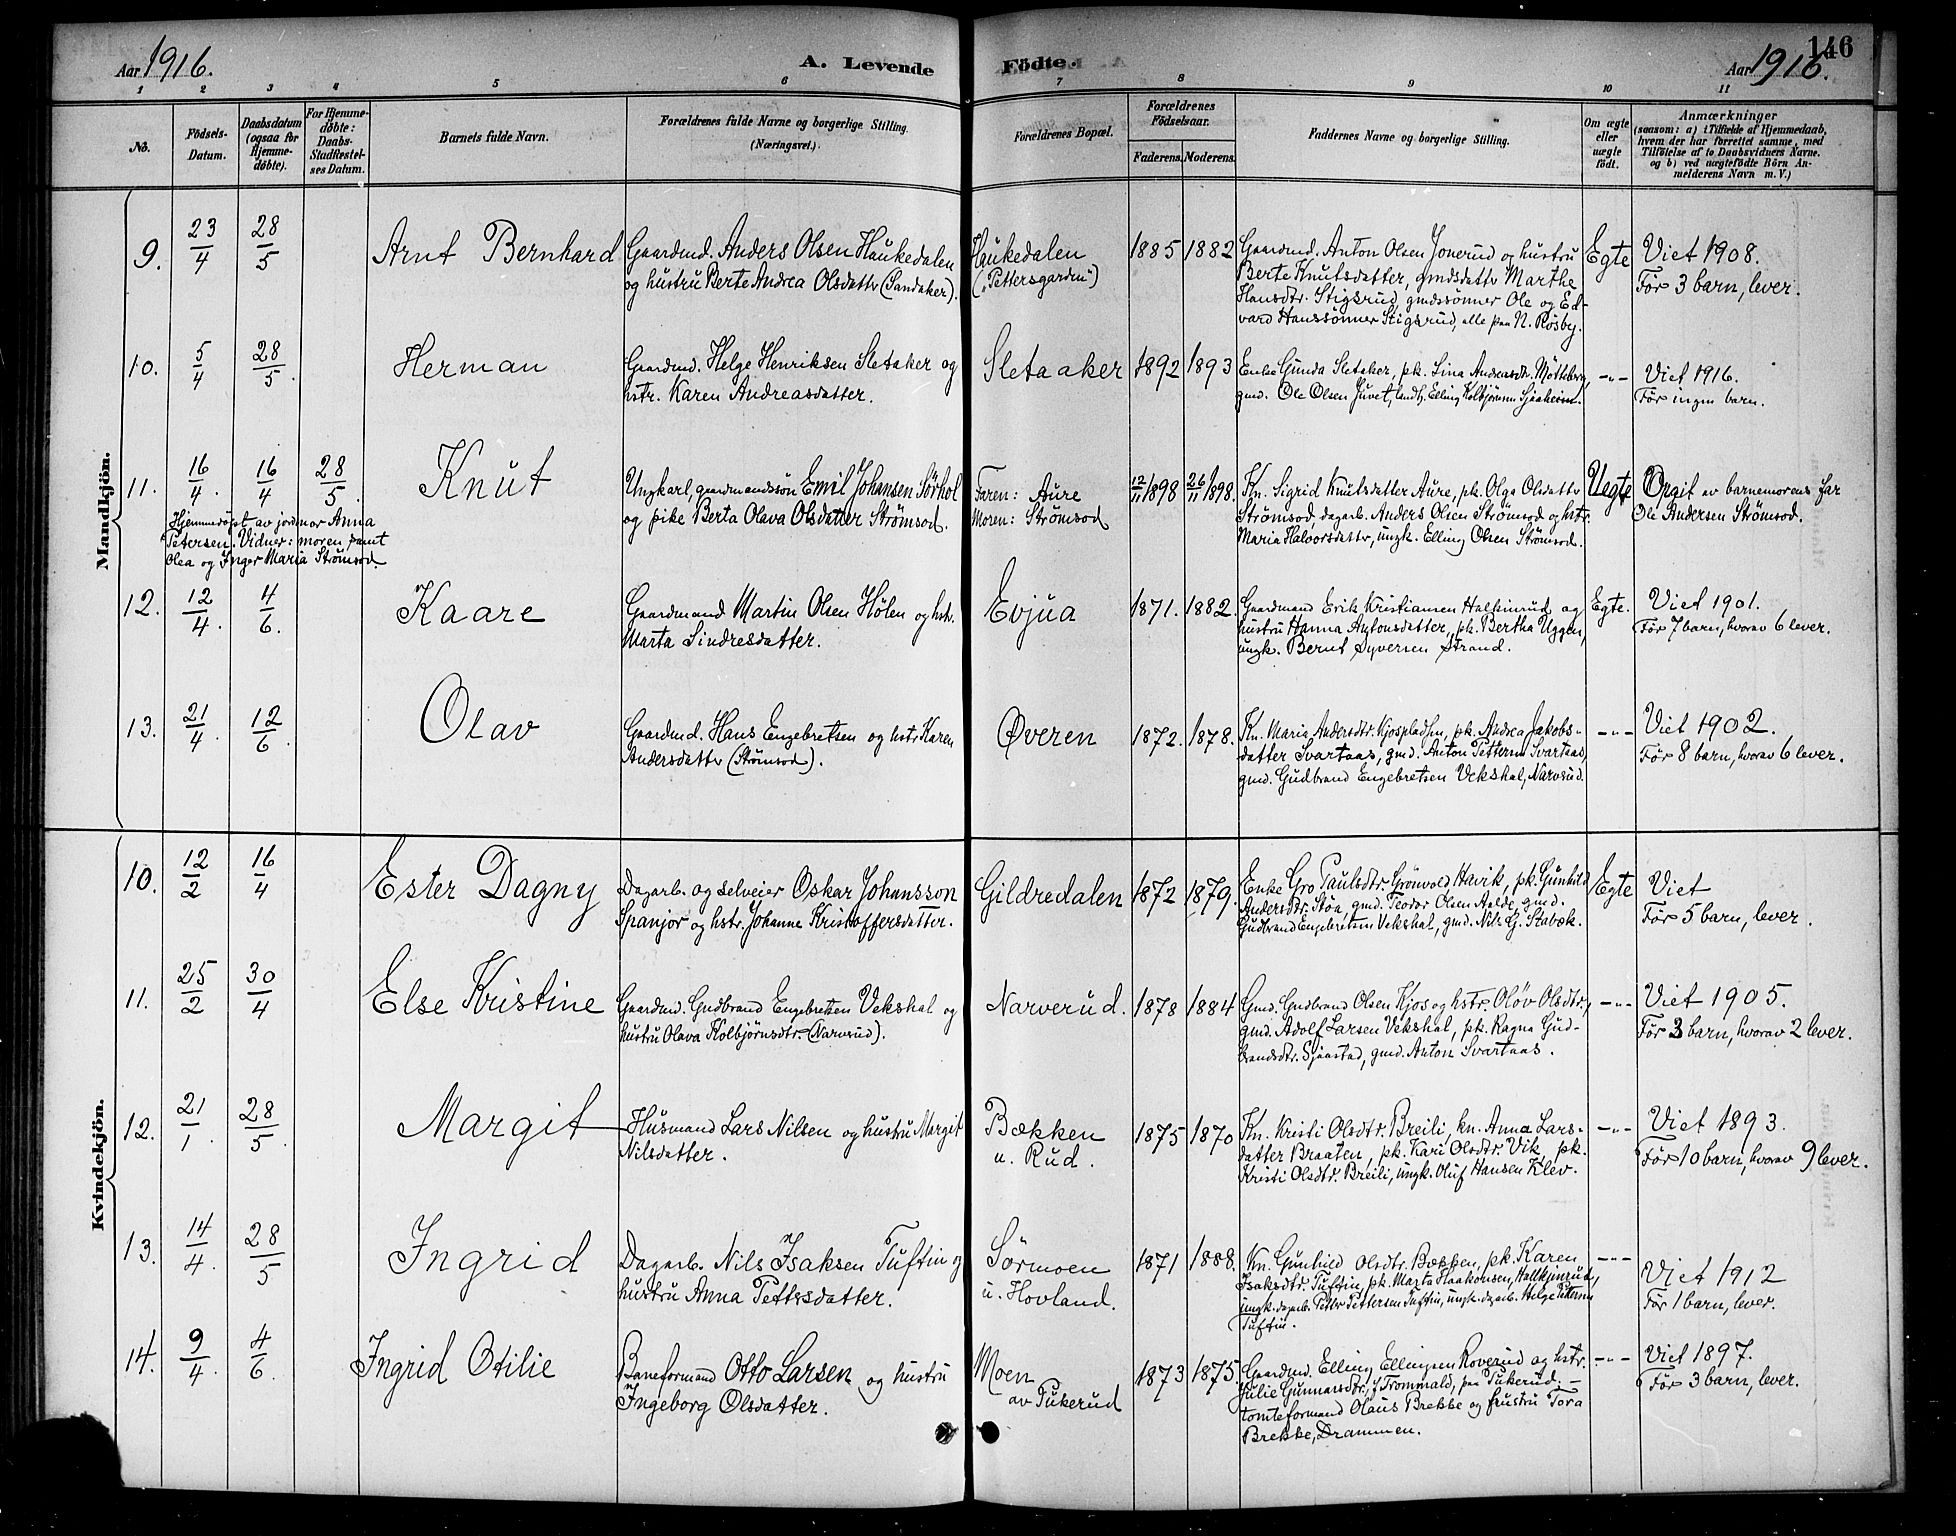 146
Aar 1916.
A. Levende
Födte.
Aar 1916.
1 2 3 4 5 6 7 8 9 10 11
No.
Födsels-Datum.
Daabsdatum (ogsaa for Hjemme-döbte).
For Hjemme-döbte: Daabs-Stadfæstel-ses Datum.
Barnets fulde Navn.
Forældrenes fulde Navne og borgerlige Stilling.
(Næringsvei.)
Forældrenes Bopæl.
Forældrenes Födselsaar.
Faderens. Moderens.
Faddernes Navne og borgerlige Stilling.
Om ægte eller uægte födt.
Anmærkninger
(saasom: a) i Tilfælde af Hjemmedaab,
hvem der har forrettet samme, med
Tilföielse af to Daabsvidners Navne.
og b) ved uægtefödte Börn An-
melderens Navn m. V.)
Mandkjön.
9. 23/4 28/5 Arnt Bernhard
Gaardmd. Anders Olsen Haukedalen
og hustru Berte Andrea Olsdattr (Sandaker).
Haukedalen
("Pettersgarden")
1885 1882
Gaardmd. Anton Olsen Jonerud og hustru
Berte Knutsdatter, gmdsdattr Marthe
Hansdtr. Stigsrud, gmdssönner Ole og Ed-
vard Hanssönner Stigsrud, alle paa N. Rösby.
Egte
Viet 1908.
Før 3 barn, lever.
10. 5/4 28/5. Herman
Gaardmd. Helge Henriksen Sletaker og
hstr. Karen Andreasdatter.
Sletaaker 1892 1893
Enke Gunda Sletaker, pk. Lina Andreasdtr. Mötteberg,
gmd. Ole Olsen Juvet, landh. Elling Kolbjörnsen Sjaaheim.
-"-
Viet 1916.
Før ingen barn.
11. 16/4. 16/4 28/5. Knut
Hjemmedøpt av jordmor Anna
Petersen. Vidner: moren samt
Olea og Inger Maria Strømsod.
Ungkarl, gaardmandssøn Emil Johansen Sörhol
og pike Berta Olava Olsdatter Strømsod.
Faren: Aure
Moren: Strømsod
12/11 1898 26/11 1898.
Kn. Sigrid Knutsdatter Aure, pk. Olga Olsdattr
Strømsod, dagarb. Anders Olsen Strømsod og hstr.
Maria Halvorsdattr, ungk. Elling Olsen Strømsod.
Uegte
Opgit av barnemorens far
Ole Andersen Strømsod.
12. 12/4. 4/6. Kaare
Gaardmand Martin Olsen Hølen og hstr.
Marta Sindresdatter.
Evjua 1871. 1882.
Gaardmand Erik Kristiansen Halkinrud og
hustru Hanna Antonsdatter, pk. Bertha Uggen,
ungk. Bernt Syversen Strand.
Egte.
Viet 1901.
Før 7 barn, hvorav 6 lever.
13. 21/4. 12/6. Olav
Gaardmd. Hans Engebretsen og hstr. Karen
Andersdattr (Strømsod).
Øveren 1872. 1878.
Kn. Maria Andersdtr. Kjospladsen, pk. Andrea Jakobs-
datter Svartaas, gmd. Anton Pettersen Svartaas,
gmd. Gudbrand Engebretsen Vekshal, Narvrud.
-"-
Viet 1902.
Før 8 barn, hvorav 6 lever.
Kvindekjön.
10. 12/2 16/4 Ester Dagny
Dagarb. og selveier Oskar Johansson
Spanjor og hstr. Johanne Kristoffersdatter.
Gildredalen 1872 1879.
Enke Gro Paulsdtr. Grönvold, Havik, pk. Gunhild
Andersdtr. Støa, gmd. Teodor Olsen Aalde, gmd.
Gudbrand Engebretsen Vekshal, gmd. Nils G. Stabæk.
Egte
Viet
Før 5 barn, lever.
11. 25/2 30/4 Else Kristine
Gaardmd. Gudbrand Engebretsen Vekshal og
hustru Olava Kolbjörnsdtr. (Narvrud).
Narverud. 1878 1884
Gmd. Gudbrand Olsen Kjos og hstr. Oløv Olsdtr.,
gmd. Adolf Larsen Vekshal, pk. Ragna Gud-
brandsdtr. Sjaastad, gmd. Anton Svartaas.
-"-
Viet 1905.
Før 3 barn, hvorav 2 lever.
12. 21/1. 28/5. Margit
Husmand Lars Nilsen og hustru Margit
Nilsdatter.
Bækken
u. Rud.
1875 1870
Kn. Kristi Olsdtr. Breili, kn. Anna Lars-
datter Braaten, pk. Kari Olsdtr. Vik, pk.
Kristi Olsdtr. Breili, ungk. Oluf Hansen Klev.
-"-
Viet 1893.
Før 10 barn, hvorav 9 lever.
13. 14/4. 28/5 Ingrid
Dagarb. Nils Isaksen Tuftin og
hustru Anna Pettersdatter.
Sörmoen
u. Hovland.
1871 1888.
Kn. Gunhild Olsdtr. Bækken, pk. Karen
Isaksdtr. Tuftin, pk. Marta Haakonsen, Hallkjinrud,
ungk. dagarb. Petter Pettersen Tuftin, ungk. dagarb. Helge Pettersen
Tuftin.
-"-
Viet 1912
Før 1 barn, lever.
14. 9/4 4/6. Ingrid Otilie
Baneformand Otto Larsen og hustru
Ingeborg Olsdatter.
Moen
av Tukerud
1873 1875.
Gaardmd. Elling Ellingsen Roverud og hstr.
Julie Gunnarsdtr., f Trommald, paa Tukerud. -
tomteformand Olaus Brekke og frustru Tora
Brekke, Drammen.
-"-
Viet 1897.
Før 3 barn, lever.